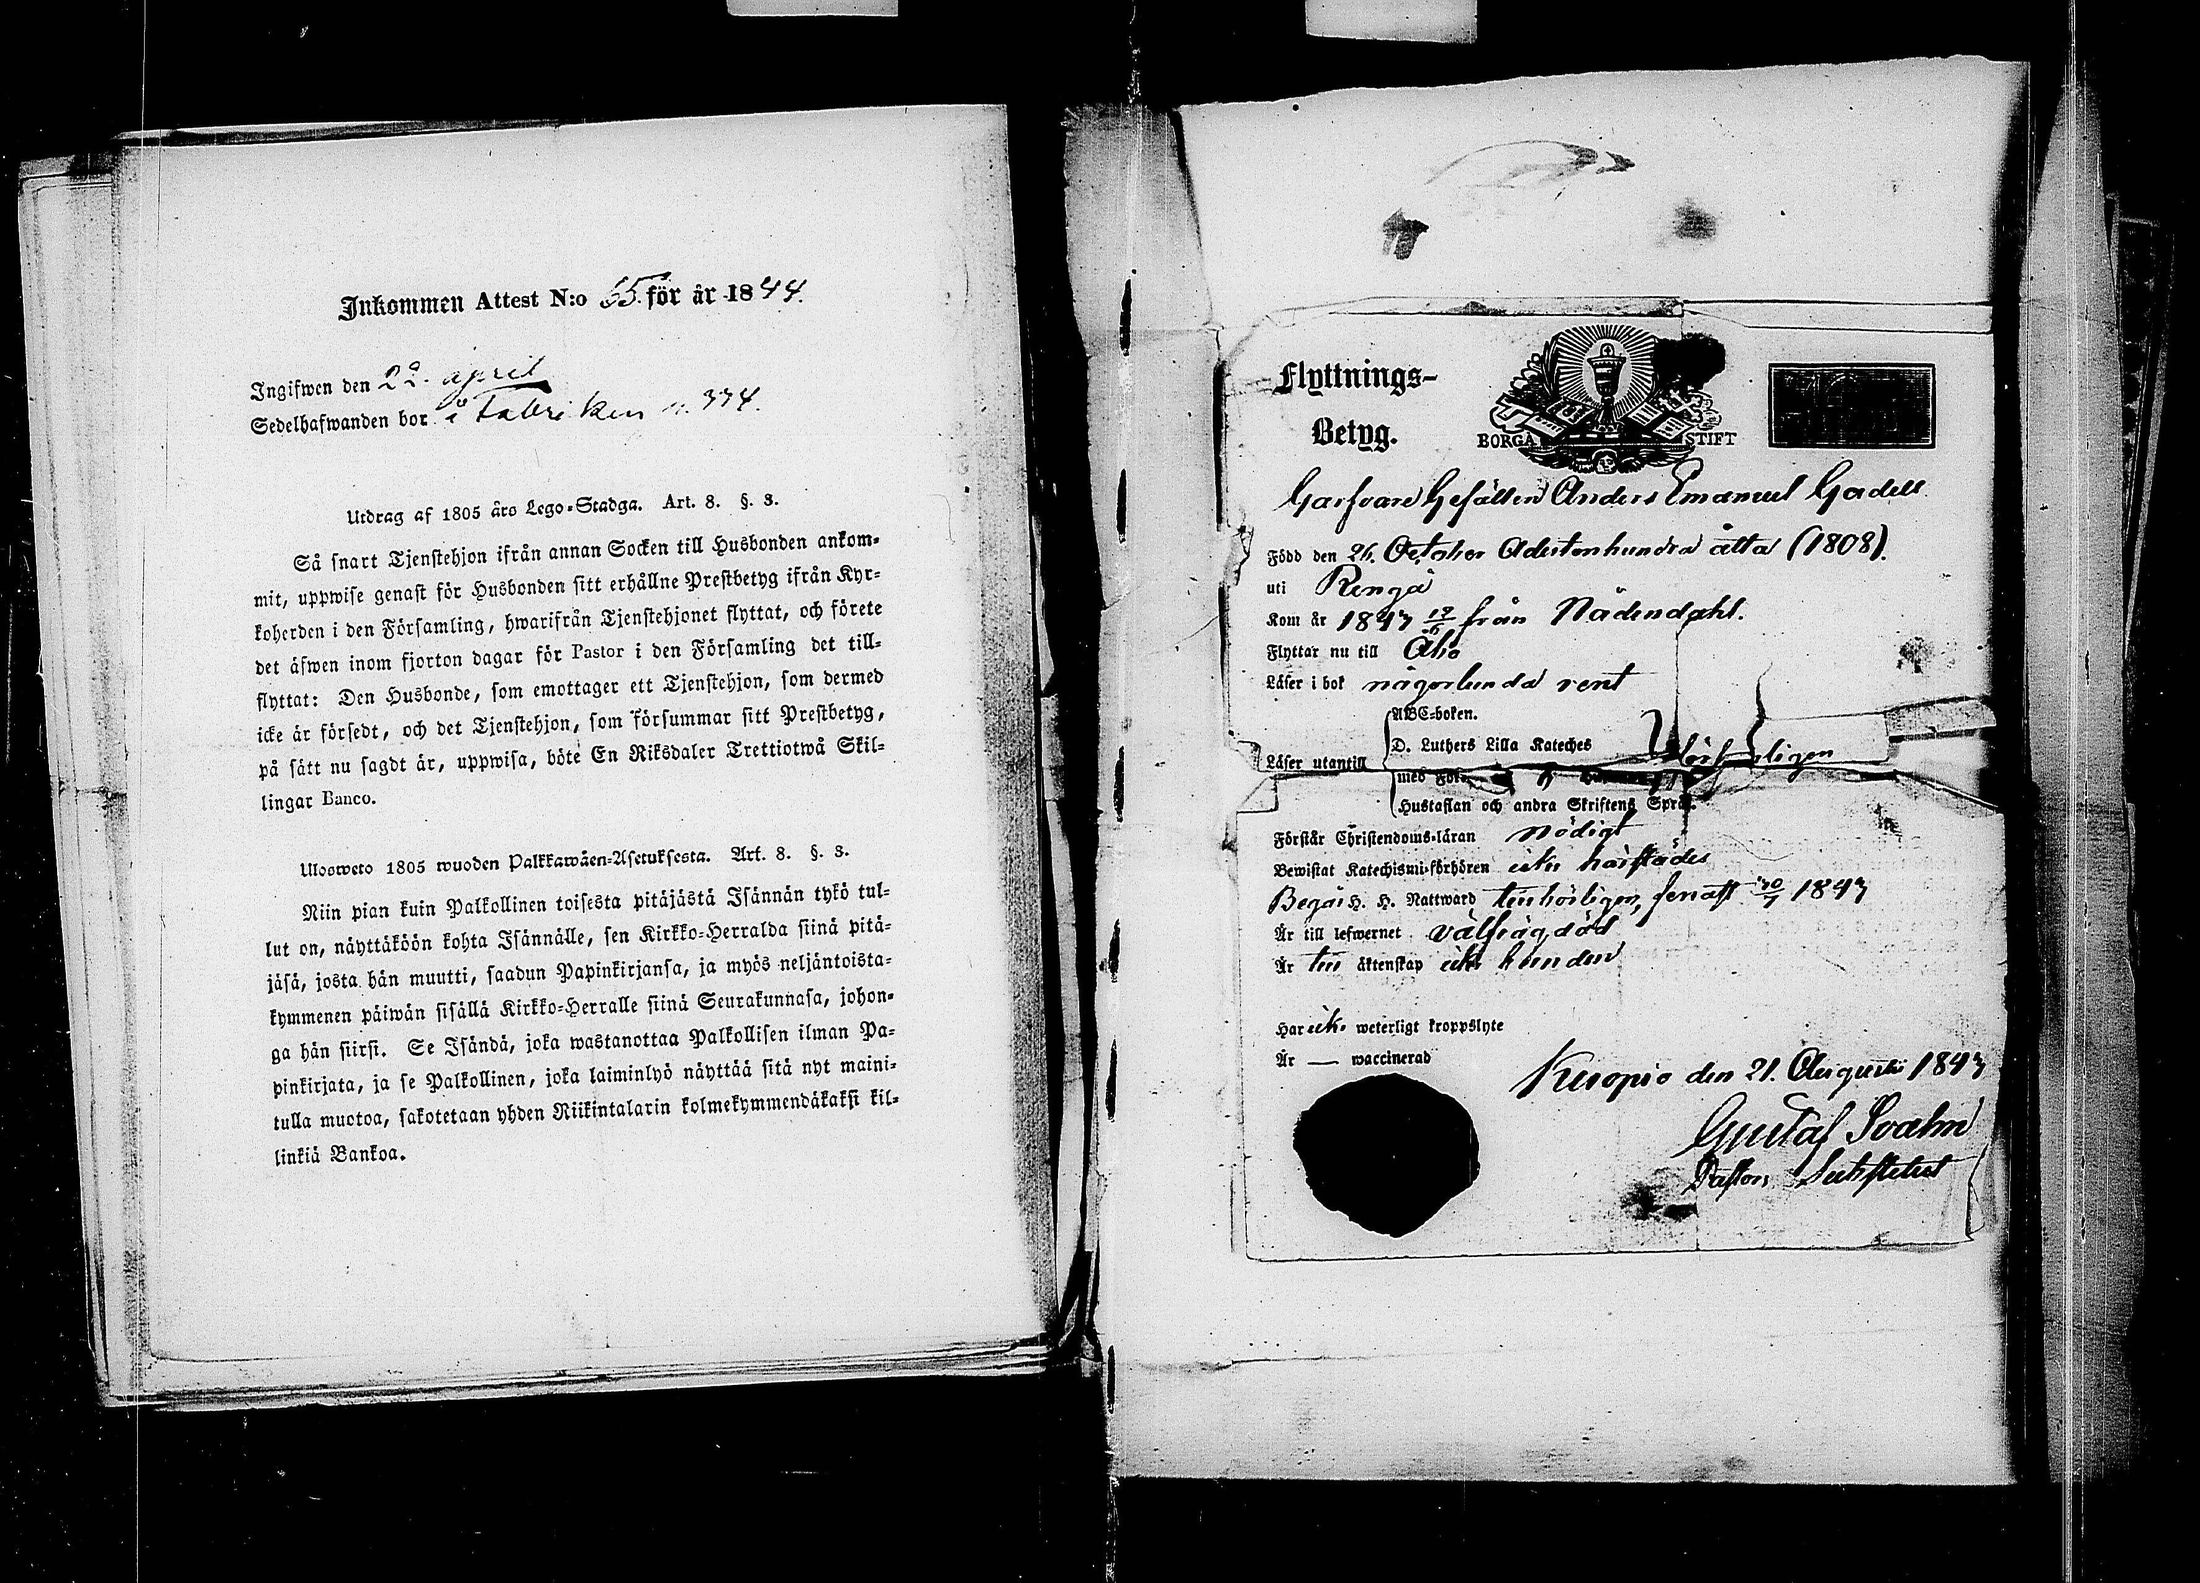 Inkommen Attest N:o 65. för år 1844.
Ingifwen den 22. april
Sedelhafwanden bor i Fabriken n. 334.
Utdrag af 1805 års Lego-Stadga. Art. 8. §. 3.
Så snart Tjenstehjon ifrån annan Socken till Husbonden ankom-
mit, uppwise genast för Husbonden sitt erhållne Prestbetyg ifrån Kyr-
koherden i den Församling, hwarifrån Tjenstehjonet flyttat, och förete
det äfwen inom fjorton dagar för Pastor i den Församling det till-
flyttat: Den Husbonde, som emottager ett Tjenstehjon, som dermed
icke är försedt, och det Tjenstehjon, som försummar sitt Prestbetyg,
på sätt nu sagdt är, uppwisa, böte En Riksdaler Trettiotwå Skil-
lingar Banco.
Ulosweto 1805 wuoden Palkkawäen-Asetuksesta. Art. 8. §. 3.
Niin pian kuin Palkollinen toisesta pitäjästä Isännän tykö tul-
lut on, näyttäköön kohta Isännälle, sen Kirkko-Herralda siinä pitä-
jäsä, josta hän muutti, saadun Papinkirjansa, ja myös neljäntoista-
kymmenen päiwän sisällä Kirkko-Herralle siinä Seurakunnasa, johon-
ga hän siirsi. Se Isändä, joka wastanottaa Palkollisen ilman Pa-
pinkirjata, ja se Palkollinen, joka laiminlyö näyttää sitä nyt maini-
tulla muotoa, sakotetaan yhden Riikintalarin kolmekymmendäkaksi kil-
linkiä Bankoa.
Flyttnings-
Betyg.
BORGÅ STIFT
Garfvare Gesällen Anders Emanuel Gadell
Född den 26. October Adertonhundra åtta (1808).
uti Rengå
Kom år 1843 från Nådendahl.
Flyttar nu till Åbo
Läser i bok någorlunda rent
Läser utantill
ABC-boken.
D. Luthers Lilla Kateches
med
Hustaflan och andra Skriftens Språk.
Förstår Christendoms-läran nödigt
Bewistat Katechismi-förhören icke härstädes
Begår H. H. Nattward tillbörligen, senast 30/7 1843
Är till lefwernet välfrägdad
Är till äktenskap icke bunden
Har icke weterligt kroppslyte
Är — waccinerad
Kuopio den 21. Augusti 1843
Gustaf Svahn
Pastors Substitut